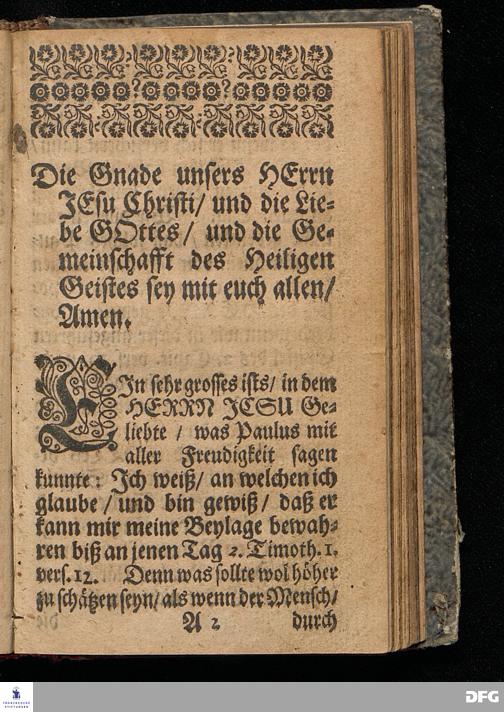 Die Gnade unsers HErrn
JEsu Christi/ und die Lie-
be GOttes/ und die Ge-
meinschafft des Heiligen
Geistes sey mit euch allen/
Amen.
EIn sehr grosses ists/ in dem
HERRN JESU Ge-
liebte / was Paulus mit
aller Freudigkeit sagen
kunnte: Ich weiß/ an welchen ich
glaube / und bin gewiß/ daß er
kann mir meine Beylage bewah-
ren biß an jenen Tag 2. Timoth. 1.
vers. 12. Denn was sollte wol höher
zu schätzen seyn/ als wenn der Mensch/
A 2 durch
FRANCKESCHE
STIFTUNGEN
DFG